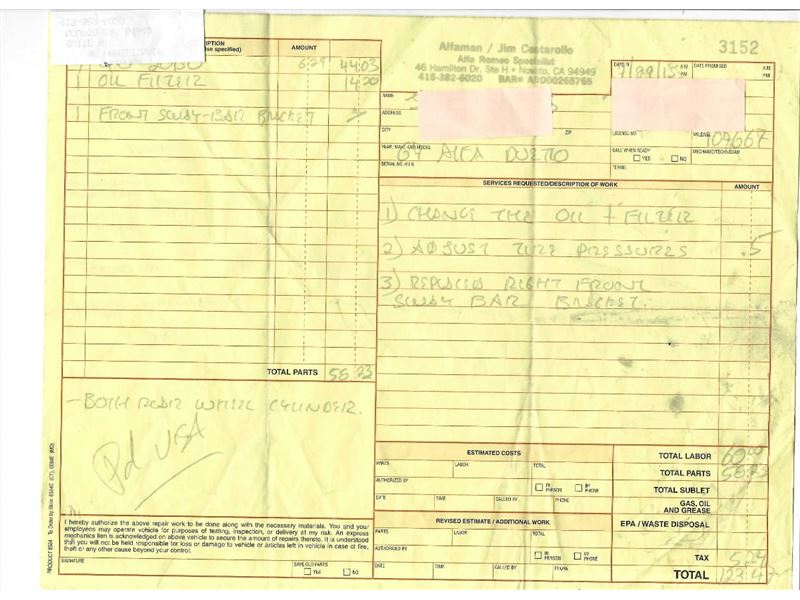 DESCRIPTION
(use specified)
AMOUNT
6.29 44.03
1 OIL FILTER 14.20
1 FRONT SWAY-BAR BRACKET
TOTAL PARTS 58.23
- BOTH REAR WHEEL CYLINDER.
Pd VISA
I hereby authorize the above repair work to be done along with the necessary materials. You and your
employees may operate vehicle for purposes of testing, inspection, or delivery at my risk. An express
mechanics lien is acknowledged on above vehicle to secure the amount of repairs thereto. It is understood
that you will not be held responsible for loss or damage to vehicle or articles left in vehicle in case of fire,
theft or any other cause beyond your control.
SIGNATURE
SAVE OLD PARTS
YES NO
Alfaman / Jim Castarollo
Alfa Romeo Specialist
46 Hamilton Dr. Ste H • Novato, CA 94949
415-382-6020 BAR# ARD00265765
3152
DATE IN A.M. P.M. DATE PROMISED A.M. P.M.
7/29/15
NAME
ADDRESS
CITY ZIP
LICENSE NO. MILEAGE
109667
YEAR, MAKE AND MODEL
ALFA DUETTO
SERIAL NO./VIN
CALL WHEN READY
YES NO
MECHANIC/TECHNICIAN
TERMS
SERVICES REQUESTED/DESCRIPTION OF WORK AMOUNT
1) CHANGE THE OIL + FILTER
2) ADJUST TIRE PRESSURES .5
3) REPLACED RIGHT FRONT
SWAY BAR BRACKET.
ESTIMATED COSTS
PARTS LABOR TOTAL
AUTHORIZED BY IN PERSON BY PHONE
DATE TIME CALLED BY PHONE
REVISED ESTIMATE / ADDITIONAL WORK
PARTS LABOR TOTAL
AUTHORIZED BY IN PERSON BY PHONE
DATE TIME CALLED BY PHONE
TOTAL LABOR 60.00
TOTAL PARTS 58.23
TOTAL SUBLET
GAS, OIL
AND GREASE
EPA / WASTE DISPOSAL
TAX 5.24
TOTAL 123.47